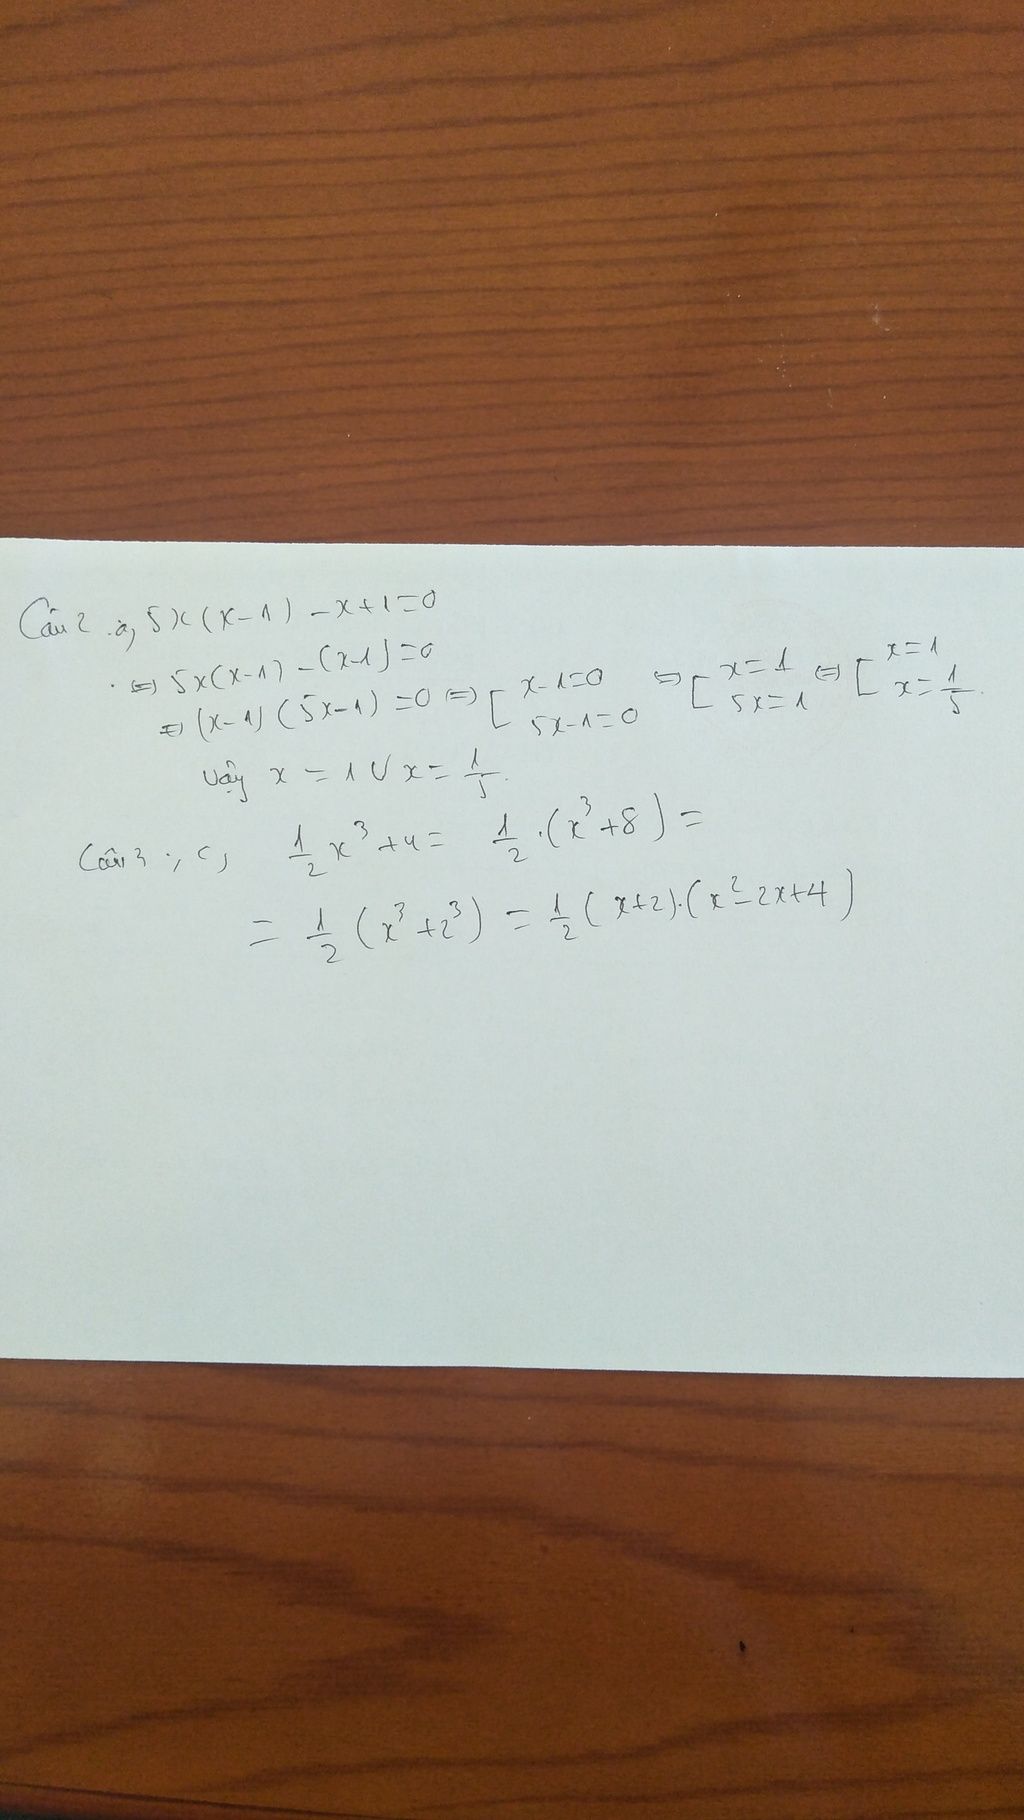 Câu 2 a, 5x(x-1) - x+1=0
⇔ 5x(x-1) - (x-1)=0
⇔ (x-1)(5x-1)=0 ⇔ [ x-1=0 5x-1=0 ⇔ [ x=1 5x=1 ⇔ [ x=1 x=1/5.
Vậy x = 1 ∨ x = 1/5.
Câu 3 : c, 1/2 x³+4 = 1/2 .(x³+8) =
= 1/2 (x³+2³) = 1/2 (x+2).(x²-2x+4)